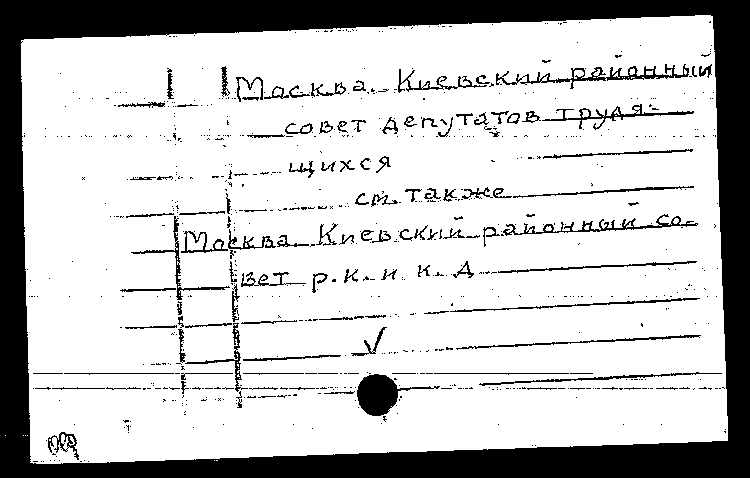 Москва. Киевский районный
совет депутатов трудя-
щихся
см. также
Москва. Киевский районный со-
вет р.к. и к.д